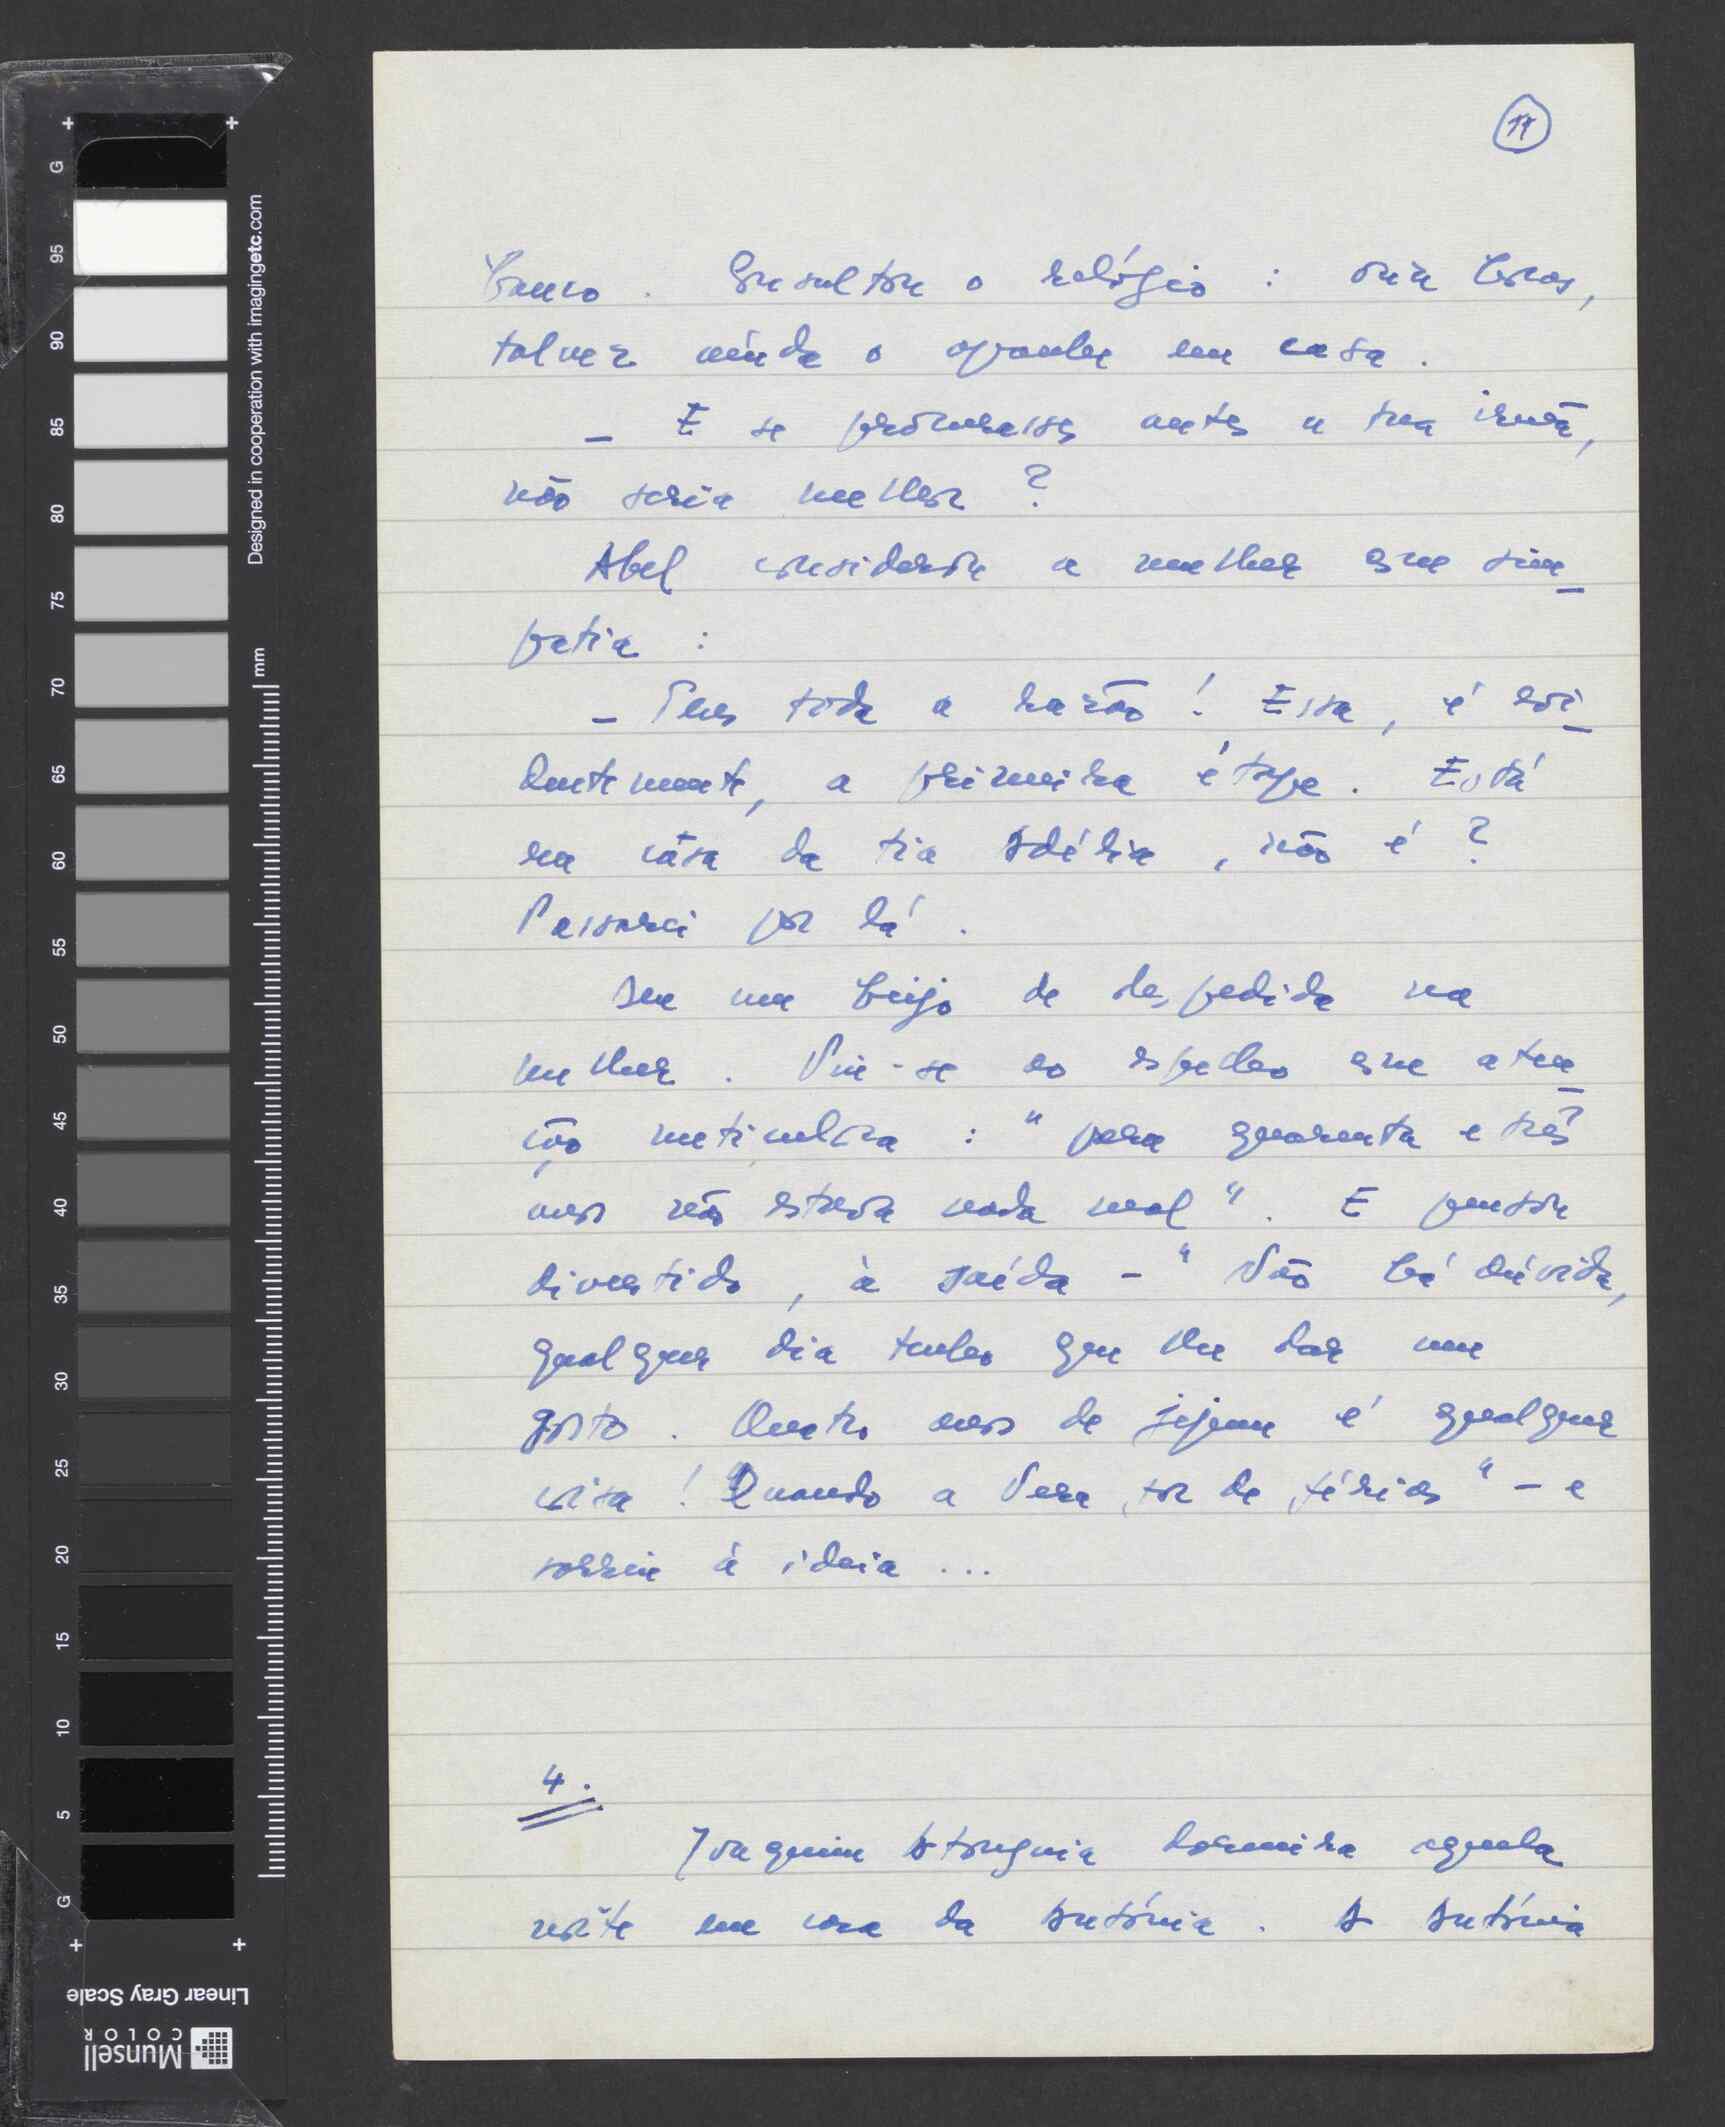 17
banco. Consultou o relógio: onze horas,
talvez ainda o apanhe em casa.
— E se procurasses antes a tua irmã,
não seria melhor?
Abel considerou a mulher com sim-
patia:
— Tens toda a razão! Essa, é evi-
dentemente, a primeira étape. Está
na casa da tia Adélia, não é?
Passarei por lá.
Deu um beijo de despedida na
mulher. Viu-se ao espelho com aten-
ção meticulosa: "para quarenta e três
anos não estava nada mal". E pensou
divertido, à saída - "Não há dúvida,
qualquer dia tenho que lhe dar um
gosto. Quatro anos de jejum é qualquer
coisa! Quando a Vera for de férias" - e
sorriu à ideia...
4.
Joaquim dormira aquela
noite em casa da Antónia. A Antónia
G
95
90
85
80
75
70
65
60
55
50
45
40
35
30
25
20
15
10
5
G
mm
Designed in cooperation with imagingetc.com
Linear Gray Scale
Munsell
COLOR